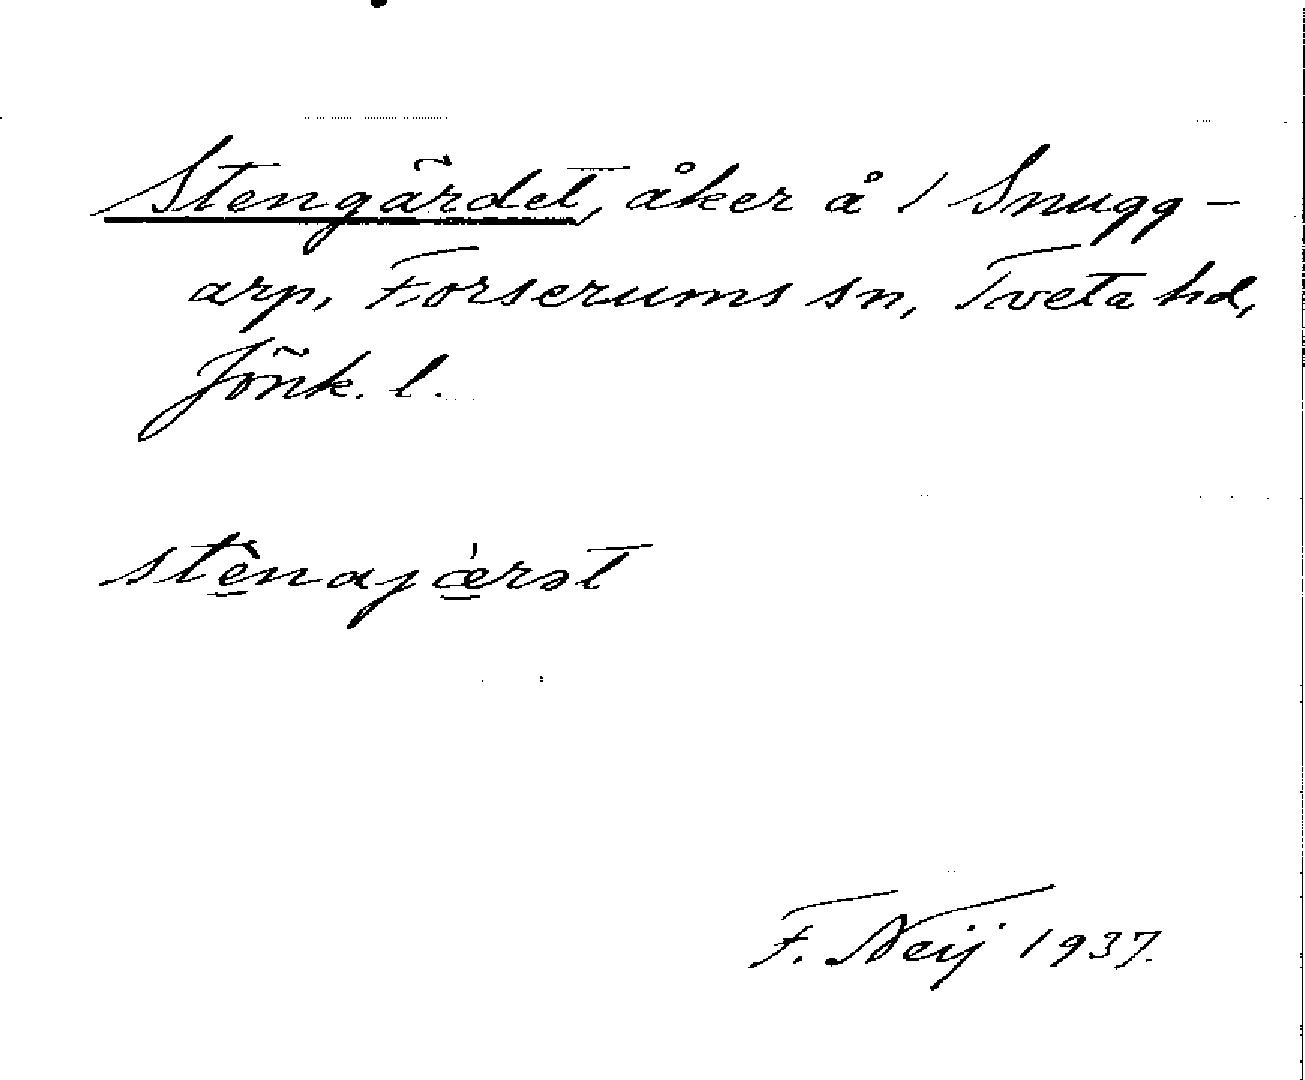 Stengärdet, åker å 1 Snugg-
arp, Forserums sn, Tveta hd,
Jönk. l.
stènajǽrət
F. Neij 1937.